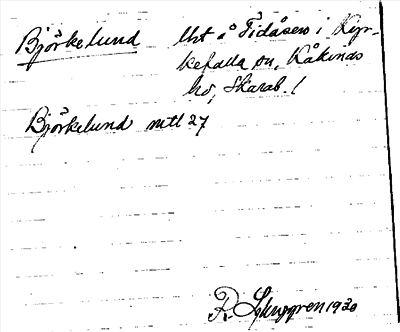 Björkelund lht å Tidåsen i Kyr-
kefalla sn, Kåkinds
hd, Skarab. l
Björkelund mtl 27
R. Ljunggren 1920